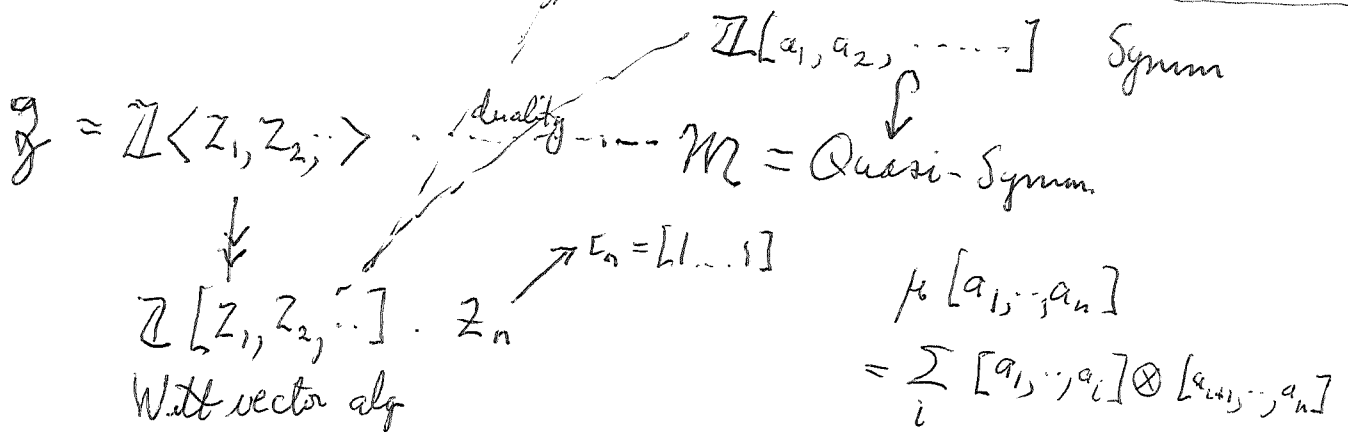 ℤ[a₁, a₂, ......] Symm
𝔷 = ℤ<Z₁, Z₂, ..> ... duality ... 𝔐 = Quasi-Symm.
ε_n = [1...1]
ℤ[Z₁, Z₂, ..] . Z_n
Witt vector alg
μ[a₁, .., a_n]
= ∑_i [a₁, .., a_i] ⊗ [a_{i+1}, .., a_n]